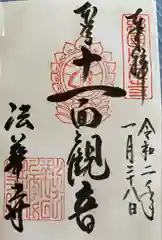 奉拝
令和二年
一月二十八日
十一面観音
法華寺